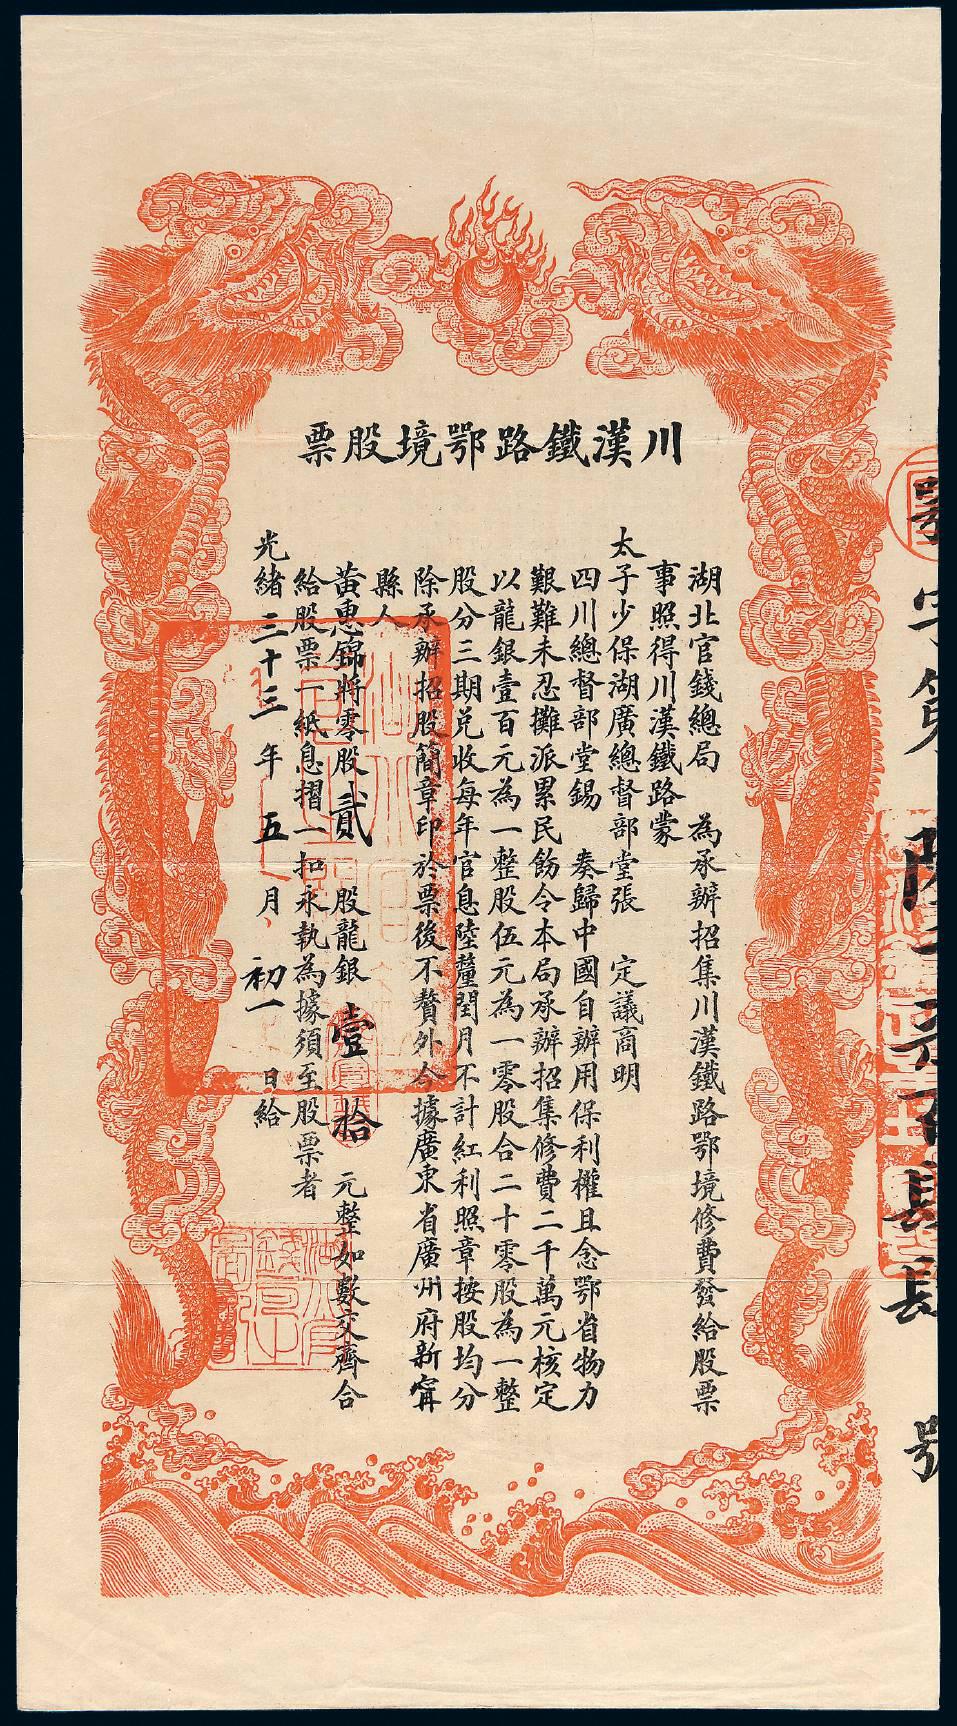 川漢鐵路鄂境股票
湖北官錢總局 為承辦招集川漢鐵路鄂境修費發給股票
事照得川漢鐵路蒙
太子少保湖廣總督部堂張 定議商明
四川總督部堂錫 奏歸中國自辦用保利權且念鄂省物力
艱難未忍攤派累民飭令本局承辦招集修費二千萬元核定
以龍銀壹百元為一整股伍元為一零股合二十零股為一整
股分三期兌收每年官息陸釐閏月不計紅利照章按股均分
除承辦招股簡章印於票後不贅外今據廣東省廣州府新甯
縣人
黃惠錦將零股貳 股龍銀 壹 拾 元整如數交齊合
給股票一紙息摺一扣永執為據須至股票者
光緒三十三年 五 月 初一 日給